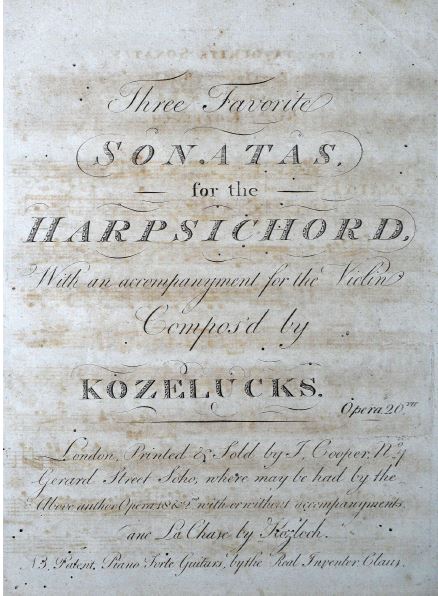 Three Favorite
SONATAS,
for the
HARPSICHORD,
With an accompanyment for the Violin
Compos'd by
KOZELUCKS.
Opera 20.
London, Printed & Sold by J. Cooper, No.
Gerard Street Soho, where may be had by the
Above author Opera with or without accompanyments
and La Chase by Kozloch.
NB. Patent, Piano Forte Guitars, by the Real Inventer Claus.